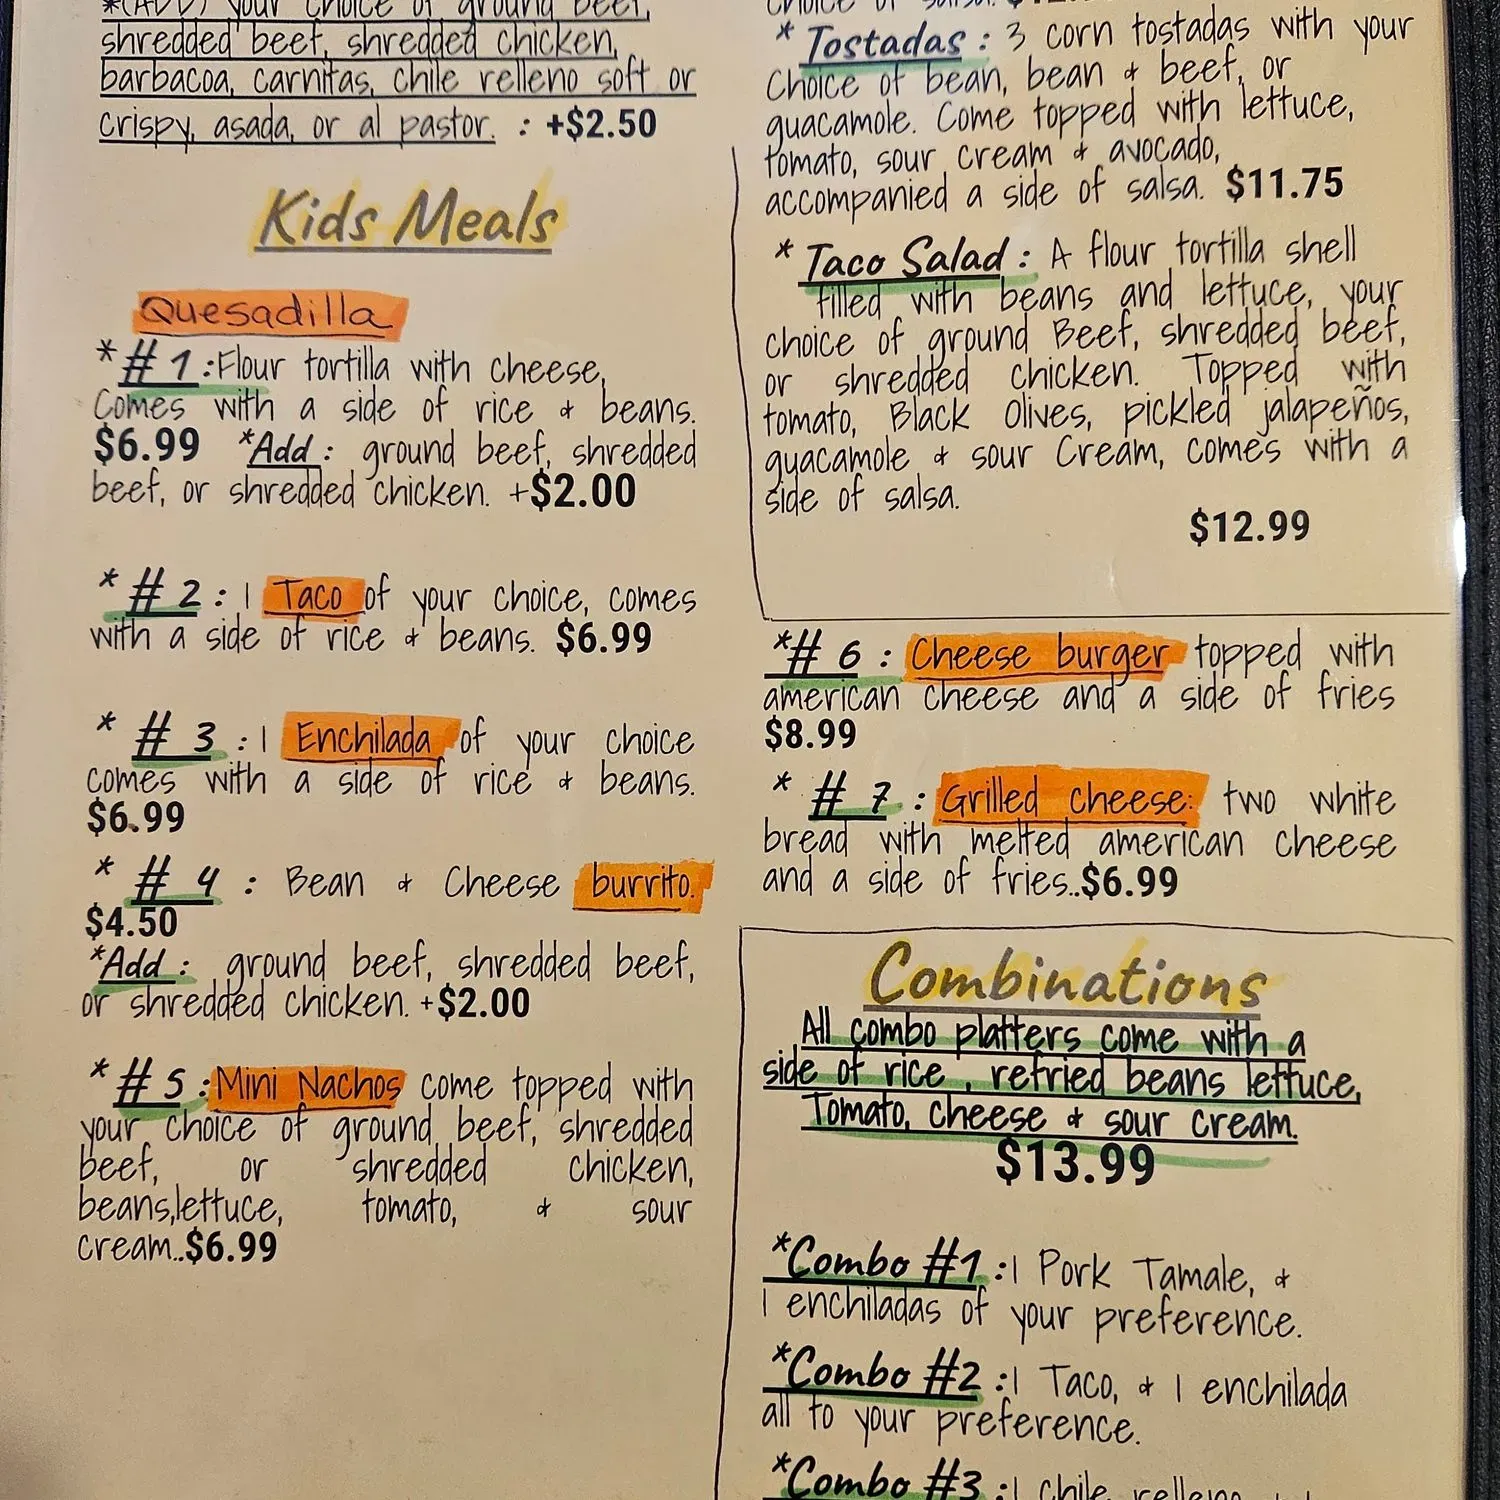 *(ADD) your choice of ground beef,
shredded beef, shredded chicken,
barbacoa, carnitas, chile relleno soft or
crispy, asada, or al pastor. : +$2.50
Kids Meals
Quesadilla
*# 1 :Flour tortilla with cheese,
Comes with a side of rice & beans.
$6.99 *Add : ground beef, shredded
beef, or shredded chicken. +$2.00
* # 2 : 1 Taco of your choice, comes
with a side of rice & beans. $6.99
* # 3 : 1 Enchilada of your choice
comes with a side of rice & beans.
$6.99
* # 4 : Bean & Cheese burrito.
$4.50
*Add : ground beef, shredded beef,
or shredded chicken. +$2.00
* # 5 :Mini Nachos come topped with
your choice of ground beef, shredded
beef, or shredded chicken,
beans,lettuce, tomato, & sour
cream..$6.99
choice of salsa.
* Tostadas : 3 corn tostadas with your
Choice of bean, bean & beef, or
guacamole. Come topped with lettuce,
tomato, sour cream & avocado,
accompanied a side of salsa. $11.75
* Taco Salad : A flour tortilla shell
filled with beans and lettuce, your
choice of ground Beef, shredded beef,
or shredded chicken. Topped with
tomato, Black Olives, pickled jalapeños,
guacamole & sour Cream, comes with a
side of salsa.
$12.99
*# 6 : Cheese burger topped with
american cheese and a side of fries
$8.99
* # 7 : Grilled cheese: two white
bread with melted american cheese
and a side of fries..$6.99
Combinations
All combo platters come with a
side of rice , refried beans lettuce,
Tomato, cheese & sour cream.
$13.99
*Combo #1 :1 Pork Tamale, &
1 enchiladas of your preference.
*Combo #2 :1 Taco, & 1 enchilada
all to your preference.
*Combo #3 :1 chile relleno